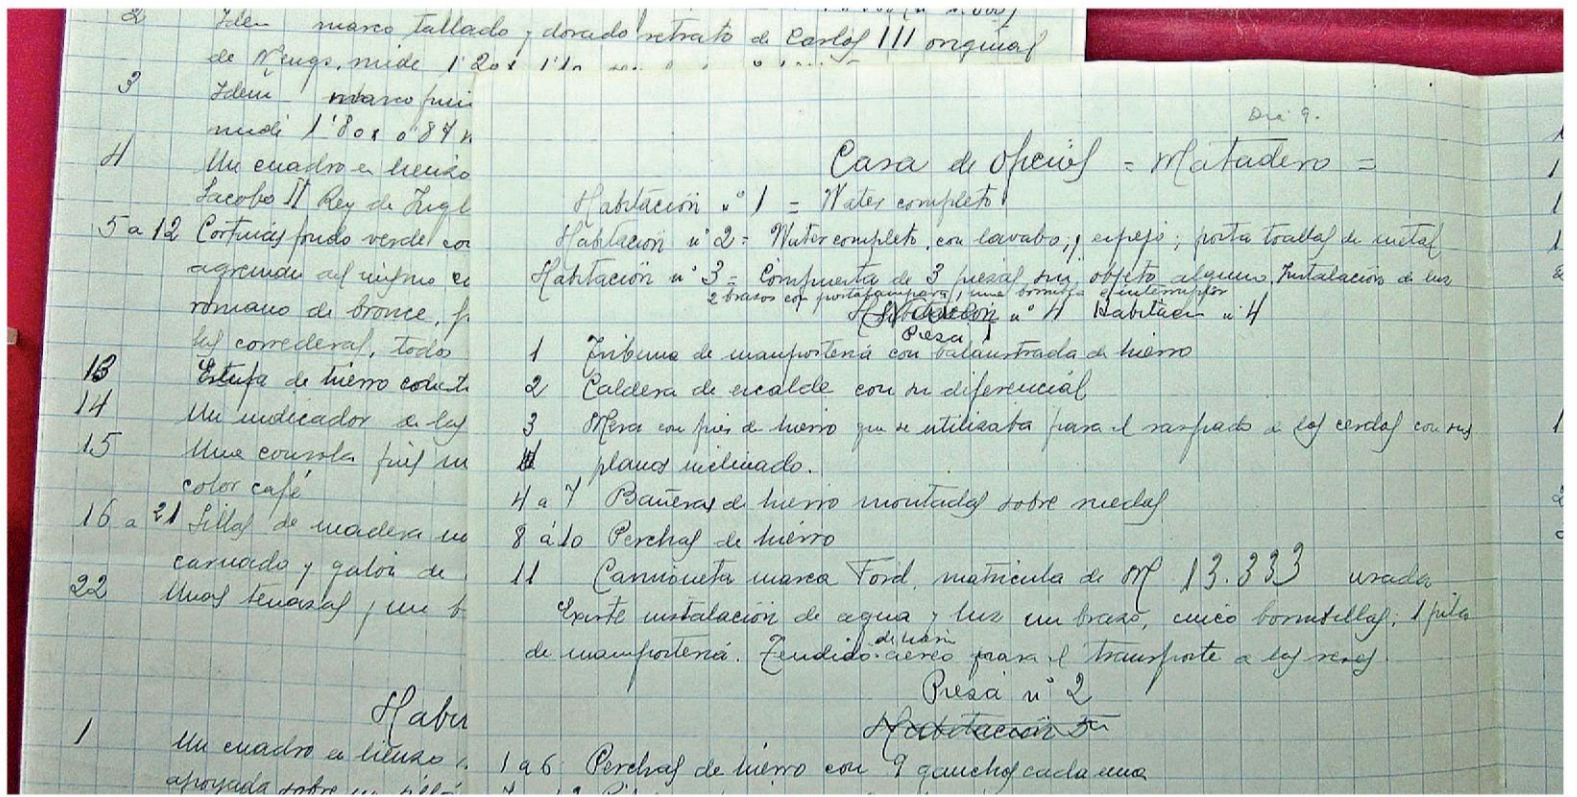 2 Idem marco tallado y dorado retrato de Carlos III original
de Mengs, mide 1'20 x 1'10
3 Idem marco
mide 1'80 x 0'87
4 Un cuadro en lienzo
Jacobo II Rey de Ingl
5 a 12 Cortinas fondo verde con
del mismo
romano de bronce,
las correderas, todos
13 Estufa de hierro
14 Un indicador de las
15 Una consola
color café
16 a 21 Sillas de madera
y galón de
22 Unas tenazas y un
Habi
1 Un cuadro en lienzo
apoyada sobre un
Dia 9.
Casa de oficios = Matadero =
Habitación nº 1 = Water completo
Habitación nº 2 = Water completo, con lavabo, y espejo; porta toallas de metal
Habitación nº 3 = Compuesta de 3 piezas sin objeto alguno, Instalación de luz
2 brazos con portalampara, una bombilla e interruptor
Habitación nº 4 Habitacion nº 4
Pieza 1
1 Tribuna de mampostería con balaustrada de hierro
2 Caldera de escalde con su diferencial
3 Mesa con pies de hierro que se utilizaba para el raspado de los cerdos con sus
planos inclinado.
4 a 7 Bañeras de hierro montadas sobre ruedas
8 á 10 Perchas de hierro
11 Camioneta marca Ford. matricula de M 13.333 usada
Existe instalación de agua y luz un brazo, cinco bombillas; 1 pila
de mampostería. Tendido aereo para el transporte de las reses.
Pieza nº 2
Habitación 5
1 a 6 Perchas de hierro con 9 ganchos cada una